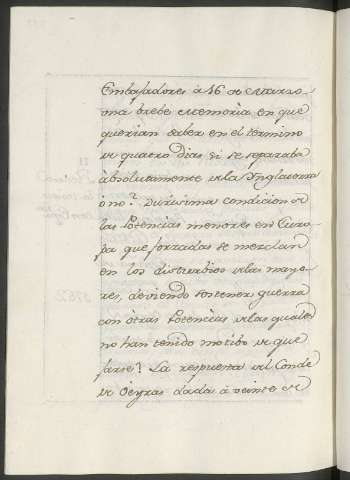 Embajadores à 16 de Marzo
una brebe memoria en que
querian saber en el termino
de quatro dias si se separaba
absolutamente de la Ynglaterra
ò no? Durisima condicion de
las Potencias menores en Euro-
pa que forzadas se mezclan
en los disturbios de las mayo-
res, deviendo sostener guerra
con òtras Potencias de las quales
no han tenido motibo de que
jarse? La respuesta del Conde
de Oeyras dada à veinte de